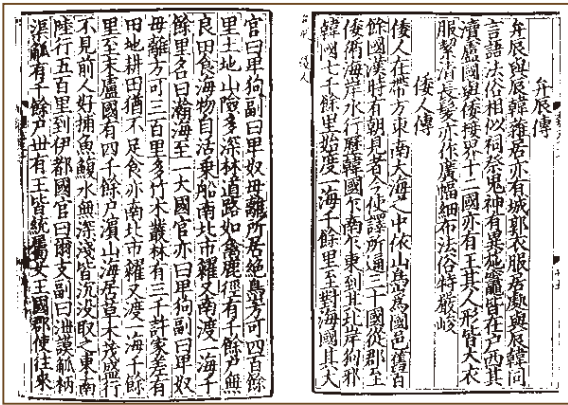 弁辰傳
弁辰與辰韓雜居亦有城郭衣服居處與辰韓同
言語法俗相似祠祭鬼神有異施竈皆在户西其
瀆盧國與倭接界十二國亦有王其人形皆大衣
服絜清長髮亦作廣幅細布法俗特嚴峻
倭人傳
倭人在帶方東南大海之中依山㠀爲國邑舊百
餘國漢時有朝見者今使譯所通三十國從郡至
倭循海岸水行歷韓國乍南乍東到其北岸狗邪
韓國七千餘里始度一海千餘里至對海國其大
官曰卑狗副曰卑奴母離所居絶㠀方可四百餘
里土地山險多深林道路如禽鹿徑有千餘户無
良田食海物自活乗船南北市糴又南渡一海千
餘里名曰瀚海至一大國官亦曰卑狗副曰卑奴
母離方可三百里多竹木叢林有三千許家差有
田地耕田猶不足食亦南北市糴又渡一海千餘
里至末盧國有四千餘户濱山海居草木茂盛行
不見前人好捕魚鰒水無深淺皆沈没取之東南
陸行五百里到伊都國官曰爾支副曰泄謨觚柄
渠觚有千餘户丗有王皆統屬女王國郡使往來